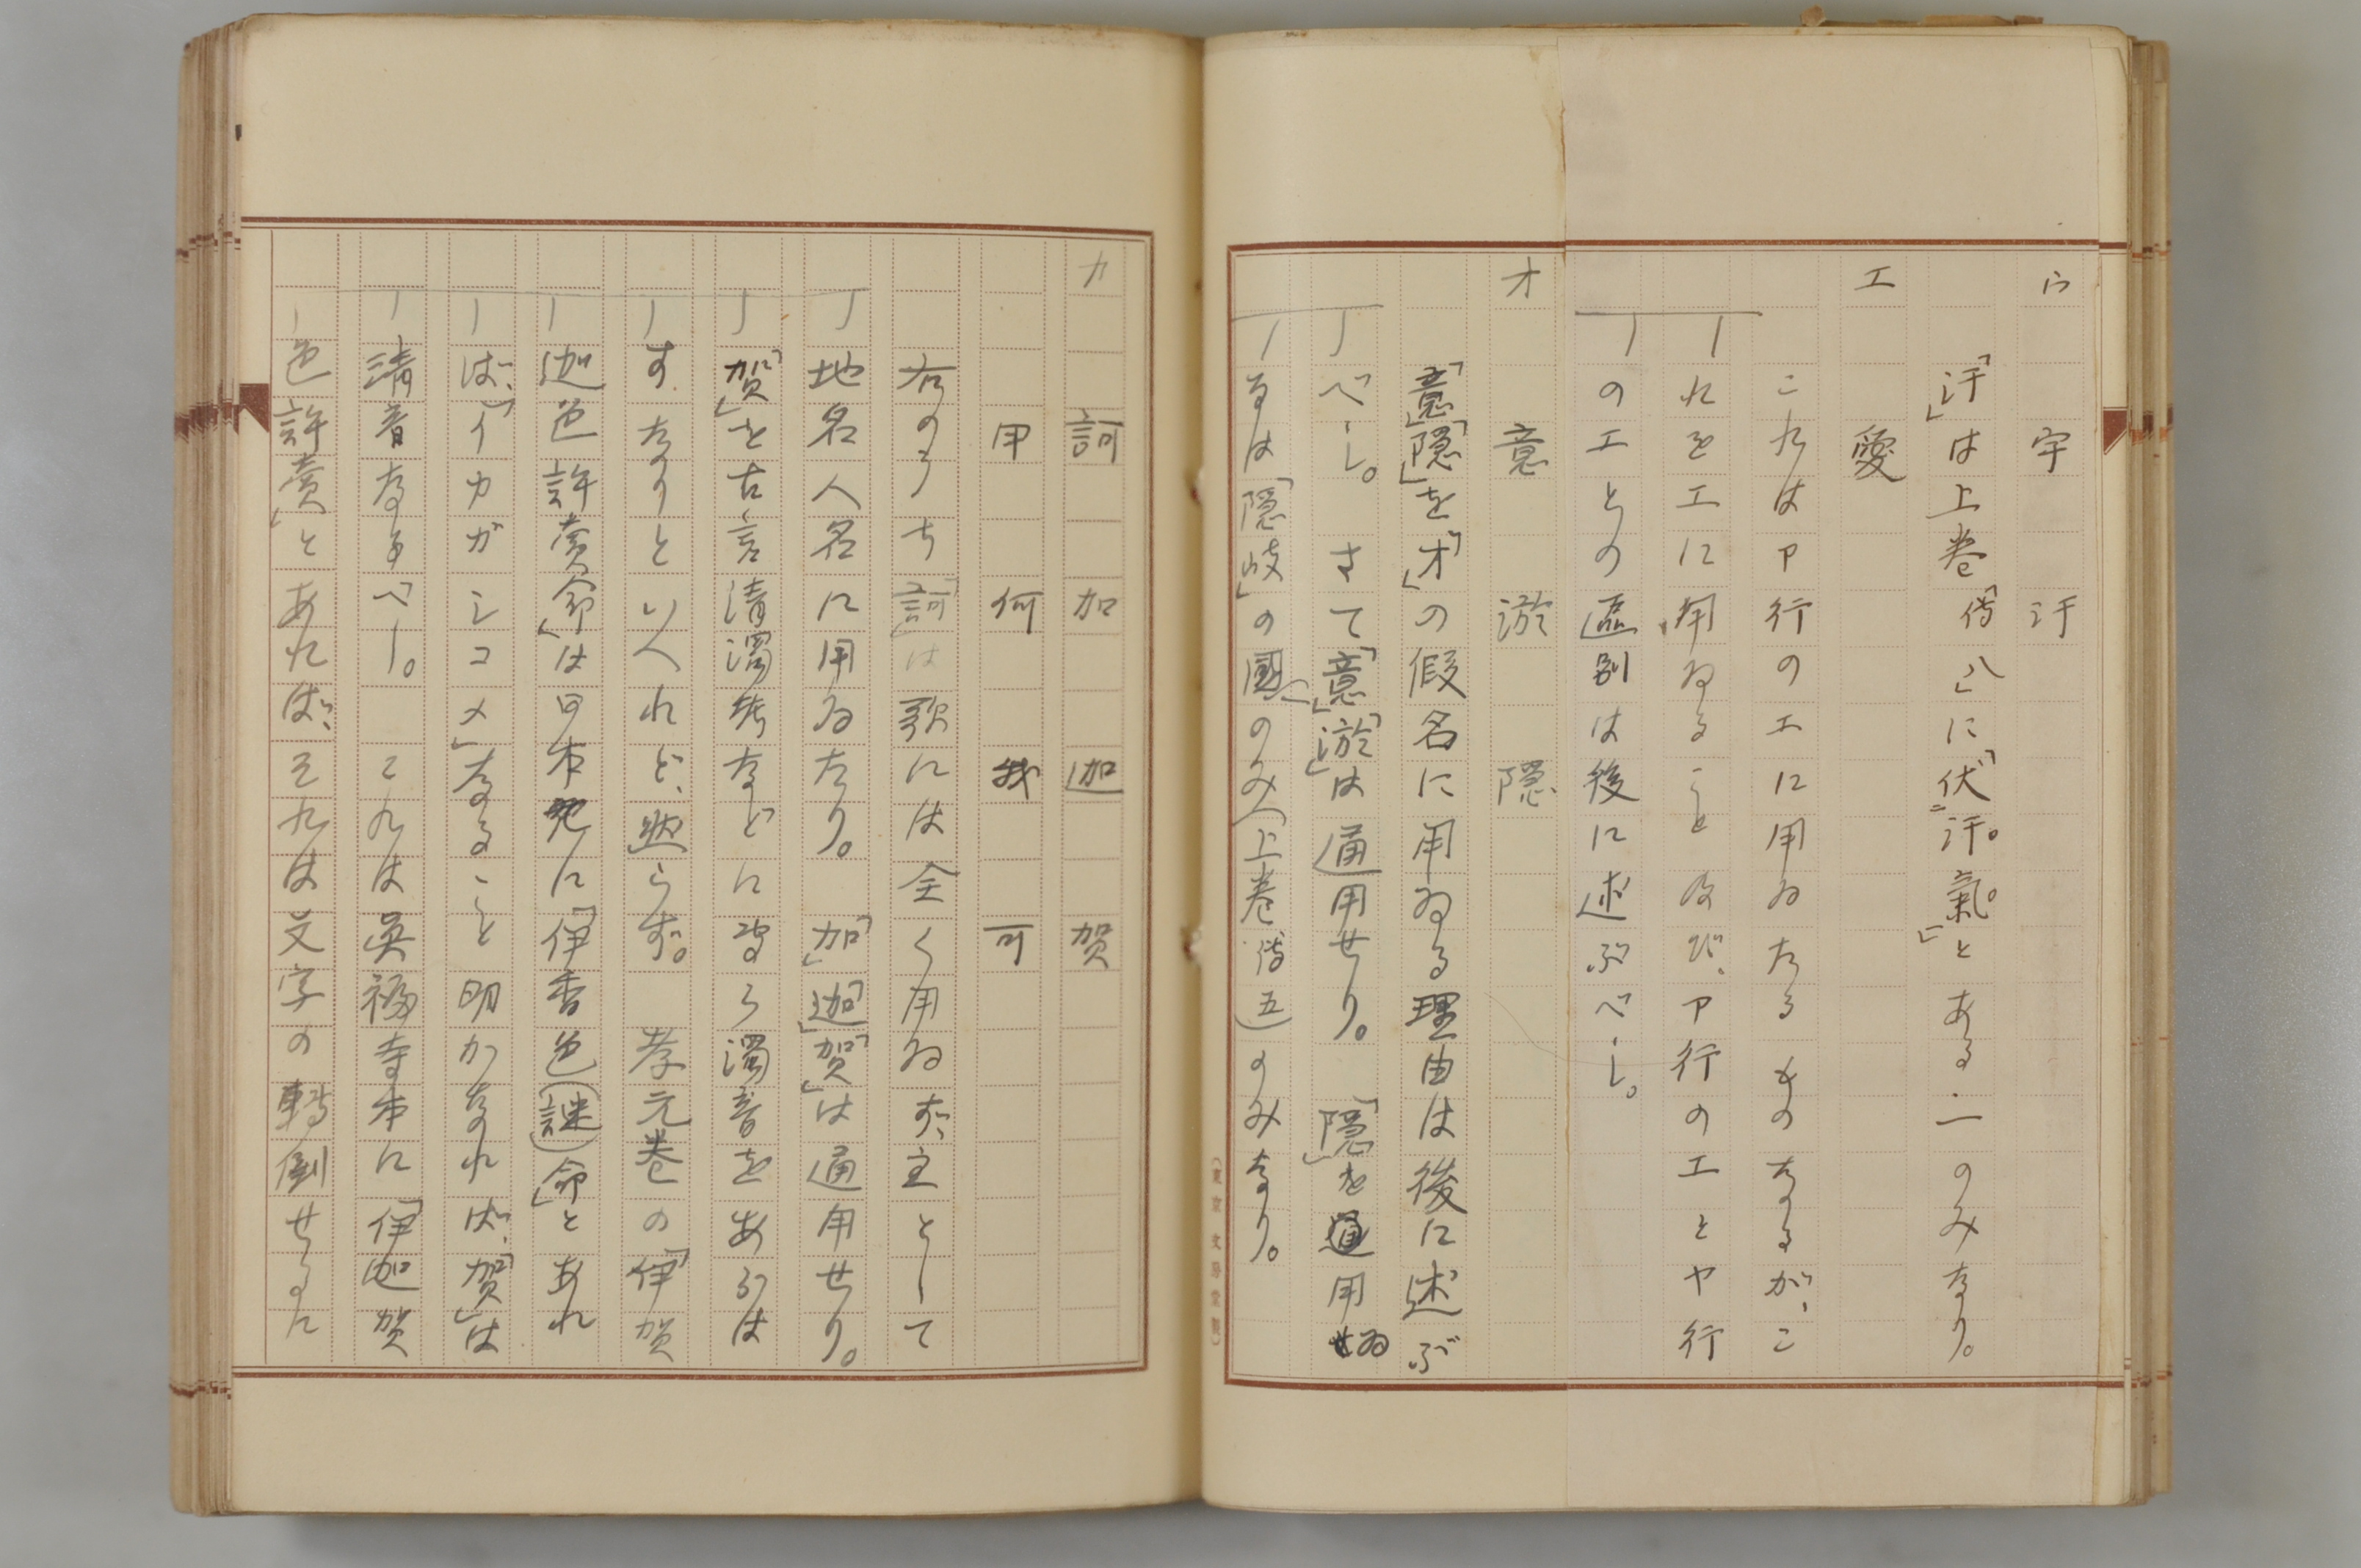 ウ　宇　汙
「汙」は上巻「傳八」に「伏汙氣」とある一のみなり。
エ　愛
これはア行のエに用ゐたるものなるが、こ
れをエに用ゐること及び、ア行のエとヤ行
のエとの區別は後に述ぶべし。
オ　意　淤　隠
「意」「隠」を「オ」の假名に用ゐる理由は後に述ぶ
べし。さて「意」「淤」は通用せり。「隠」を通用せる
は「隠岐」の國のみ（上巻傳五）のみなり。
（東京文房堂製）
カ　訶　加　迦　賀
甲　何　我　可
右のうち「訶」は歌には全く用ゐず、主として
地名人名に用ゐたり。「加」「迦」「賀」は通用せり。
「賀」を古言清濁考などに専ら濁音をあらは
すなりといへれど、然らず。孝元巻の「伊賀
迦色許賣命」は日本紀に「伊香色謎命」とあれ
ば、「イカガシコメ」なること明かなれば、「賀」は
清音なるべし。これは眞福寺本に「伊迦賀
色許賣」とあれば、それは文字の轉倒せるに